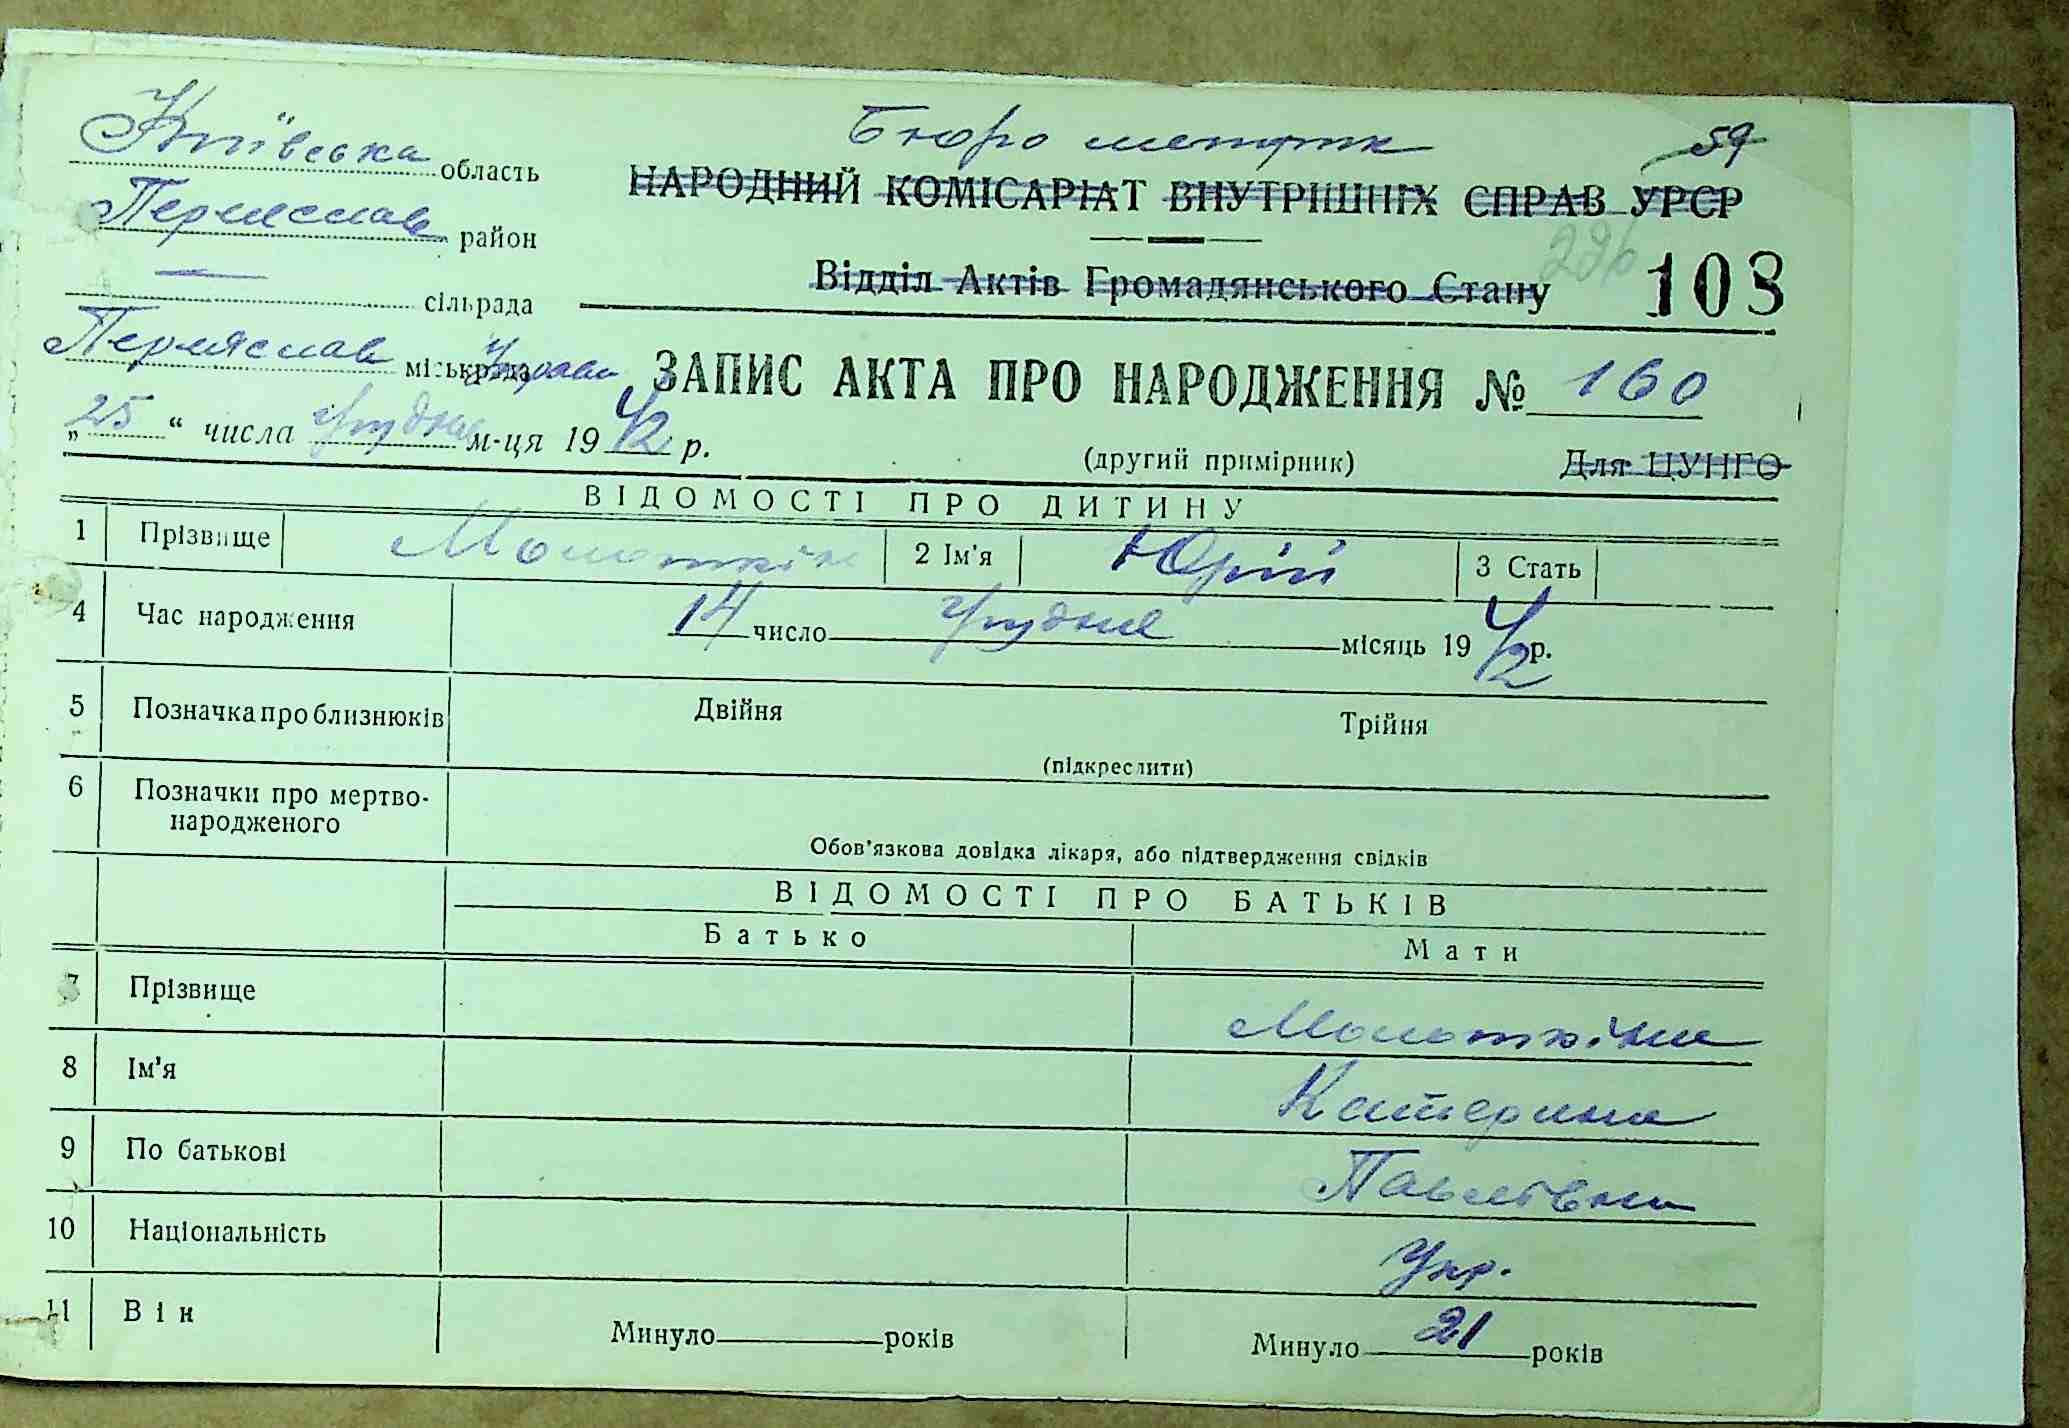 Київська область
Бюро метрик 59
Переяслав район
НАРОДНИЙ КОМІСАРІАТ ВНУТРІШНІХ СПРАВ УРСР
сільрада
Відділ Актів Громадянського Стану 296 103
Переяслав міськрада Управа
ЗАПИС АКТА ПРО НАРОДЖЕННЯ № 160
„25“ числа грудня м-ця 1942 р.
(другий примірник) Для ЦУНГО
ВІДОМОСТІ ПРО ДИТИНУ
1 Прізвище Молоткін 2 Ім'я Юрій 3 Стать
4 Час народження 14 число грудня місяць 1942 р.
5 Позначка про близнюків Двійня Трійня
(підкреслити)
6 Позначки про мертво-
народженого
Обов'язкова довідка лікаря, або підтвердження свідків
ВІДОМОСТІ ПРО БАТЬКІВ
Батько Мати
7 Прізвище Молоткіна
8 Ім'я Катерина
9 По батькові Павлівна
10 Національність Укр.
11 Він Минуло років Минуло 21 років